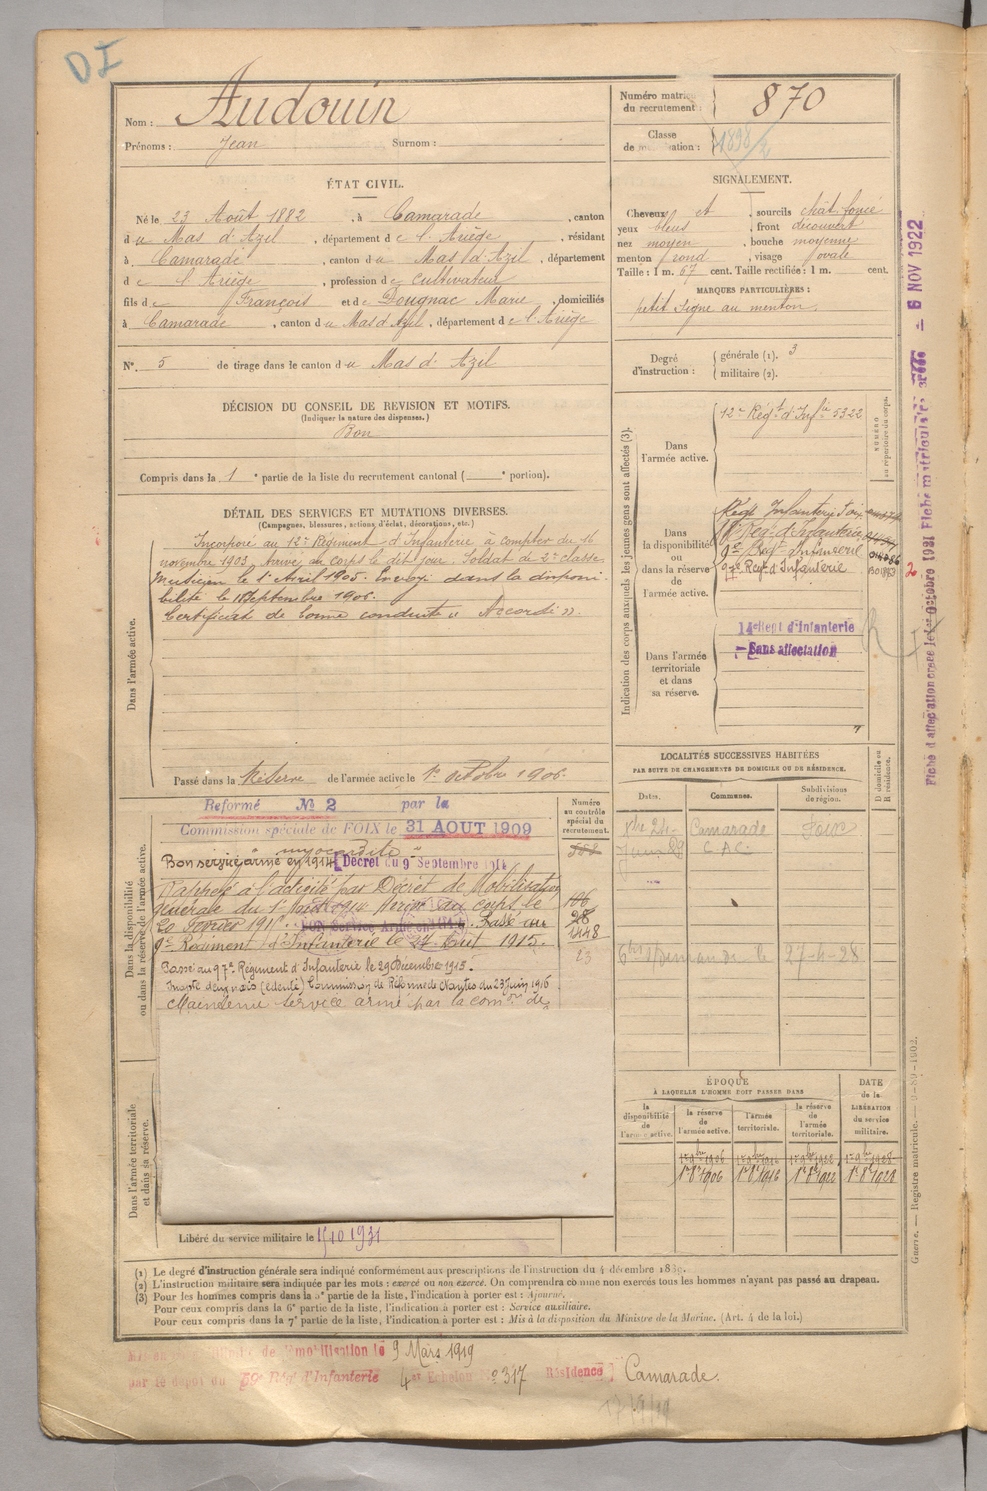 DI
Nom : Audouin
Prénoms : Jean Surnom :
Numéro matricule du recrutement : 870
Classe de mobilisation : 1898/2
ÉTAT CIVIL.
Né le 23 Août 1882, à Camarade, canton
du Mas d'Azil, département de l'Ariège, résidant
à Camarade, canton du Mas d'Azil, département
de l'Ariège, profession de cultivateur
fils de François et de Dougnac Marie, domiciliés
à Camarade, canton du Mas d'Azil, département de l'Ariège
N° 5 de tirage dans le canton du Mas d'Azil
SIGNALEMENT.
Cheveux et, sourcils chât. foncé
yeux bleus, front découvert
nez moyen, bouche moyenne
menton rond, visage ovale
Taille : 1 m. 67 cent. Taille rectifiée : 1 m. cent.
MARQUES PARTICULIÈRES :
petit signe au menton.
Degré d'instruction : générale (1). 3
militaire (2).
DÉCISION DU CONSEIL DE REVISION ET MOTIFS.
(Indiquer la nature des dispenses.)
Bon
Compris dans la 1e partie de la liste du recrutement cantonal ( e portion).
DÉTAIL DES SERVICES ET MUTATIONS DIVERSES.
(Campagnes, blessures, actions d'éclat, décorations, etc.)
Dans l'armée active.
Incorporé au 12e Régiment d'Infanterie à compter du 16
novembre 1903, Arrivé au corps le dit jour Soldat de 2e classe
Musicien le 1er Avril 1905. Envoyé dans la disponi-
bilité le Septembre 1906.
Certificat de bonne conduite « Accordé ».
Passé dans la Réserve de l'armée active le 1er octobre 1906.
Indication des corps auxquels les jeunes gens sont affectés (3).
Dans l'armée active.
12e Régt d'Infie 5322
NUMÉRO au répertoire du corps.
Dans la disponibilité ou dans la réserve de l'armée active.
Régt Infanterie Foix
Régt d'Infanterie
9e Régt Infanterie
97e Régt d'Infanterie
Dans l'armée territoriale et dans sa réserve.
14e Regt d'Infanterie
Sans affectation
Dans la disponibilité ou dans la réserve de l'armée active.
Numéro au contrôle spécial du recrutement.
Reformé No 2 par la
Commission spéciale de FOIX le 31 AOUT 1909
"myocardite"
Bon service armé en 1914 Décret du 9 Septembre 1914
Rappelé à l'activité par Décret de Mobilisation
générale du 1er Août 1914 Arrivé au corps le
20 Février 1915. Bon Service Armé Passé au
9e Régiment d'Infanterie le Avril 1915.
Passé au 97e Régiment d'Infanterie le 29 Décembre 1915.
Inapte deux mois (édenté) Commission de Réforme de Nantes du 23 Juin 1916
Maintenu service armé par la comon de
106
28
1448
23
LOCALITÉS SUCCESSIVES HABITÉES
PAR SUITE DE CHANGEMENTS DE DOMICILE OU DE RÉSIDENCE.
Dates. Communes. Subdivisions de région. D domicile ou R résidence.
Camarade Foix
27-4-28
ÉPOQUE
À LAQUELLE L'HOMME DOIT PASSER DANS
la disponibilité de l'armée active. la réserve de l'armée active. l'armée territoriale. la réserve de l'armée territoriale.
DATE de la LIBÉRATION du service militaire.
1er 8bre 1906 1er 8bre 1916 1er 8bre 1922 1er 8bre 1928
Dans l'armée territoriale et dans sa réserve.
Libéré du service militaire le 15 10 1931
(1) Le degré d'instruction générale sera indiqué conformément aux prescriptions de l'instruction du 4 décembre 1889.
(2) L'instruction militaire sera indiquée par les mots : exercé ou non exercé. On comprendra comme non exercés tous les hommes n'ayant pas passé au drapeau.
(3) Pour les hommes compris dans la 5e partie de la liste, l'indication à porter est : Ajourné.
Pour ceux compris dans la 6e partie de la liste, l'indication à porter est : Service auxiliaire.
Pour ceux compris dans la 7e partie de la liste, l'indication à porter est : Mis à la disposition du Ministre de la Marine. (Art. 4 de la loi.)
Guerre. — Registre matricule. — 1902.
6 NOV 1922
Fiche d'affectation créée le 1er Octobre 1931 Fiche matriculaire créée
de démobilisation le 9 Mars 1919
par le dépôt du 59e Régt d'Infanterie 4e Echelon No 317 Résidence Camarade.